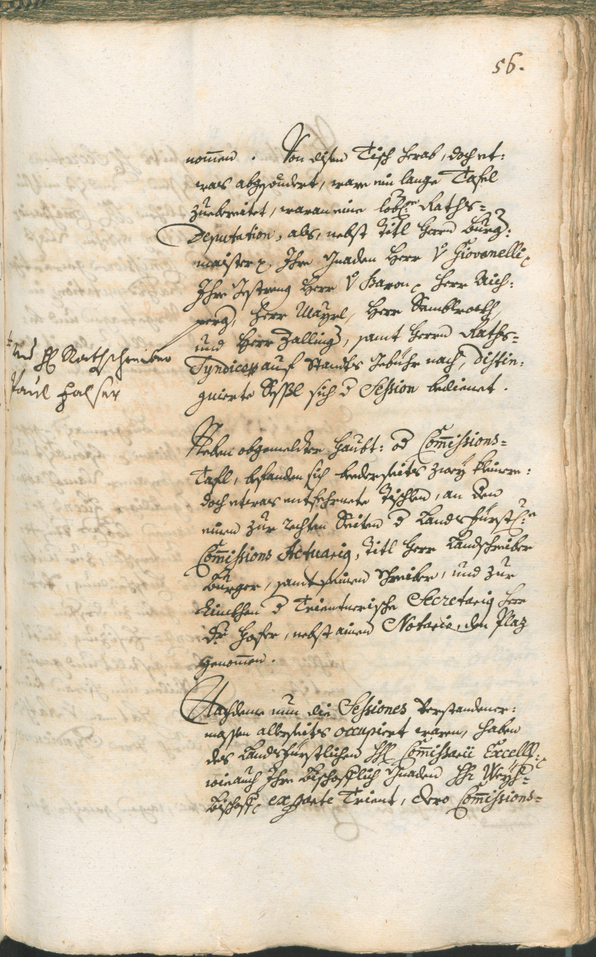 56.
nommen. Von disem Tisch herab, doch et:
was abgesöndert, ware ein lange Tafel
zuebereitet, woran eine löbl. Raths-
Deputation, als, nebst Titl Herrn Burg:
maister p. Ihro Gnaden Herr V Giovanelli,
Ihro Gestreng Herr V Baron, Herr Aich-
perg, Herr Mayrl, Herr Sambroth,
und Herr Zalling, samt Herrn Raths-
und H Rathschreiber
Paul Halser
Syndico auf Standts Gebühr nach, distin-
guierte Sessl sich d Session bedienet.
Neben obgemeldten Haubt: od Commissions-
Tafl, befanden sich beederseits zwey kleinere:
doch etwas entfehrnete Tischlen, an dem
einen zur rechten Seiten d Landsfürstl:
Commissions Actuarig, Titl Herr Landschreiber
Burger, samt seinen Schreiber, und zur
Linckhen d Trientnerische Secretarig Herr
Dr Hofer, nebst ainen Notario, den Plaz
genommen.
Nachdeme nun die Sessiones verstandener:
massen allerseits occupiert waren, haben
des Landsfürstlichen HH Commissarii Excell.
wie auch Ihro Bischofflich Gnaden HH Weyh-
Bischoff, ex parte Trient, dero Commissions-